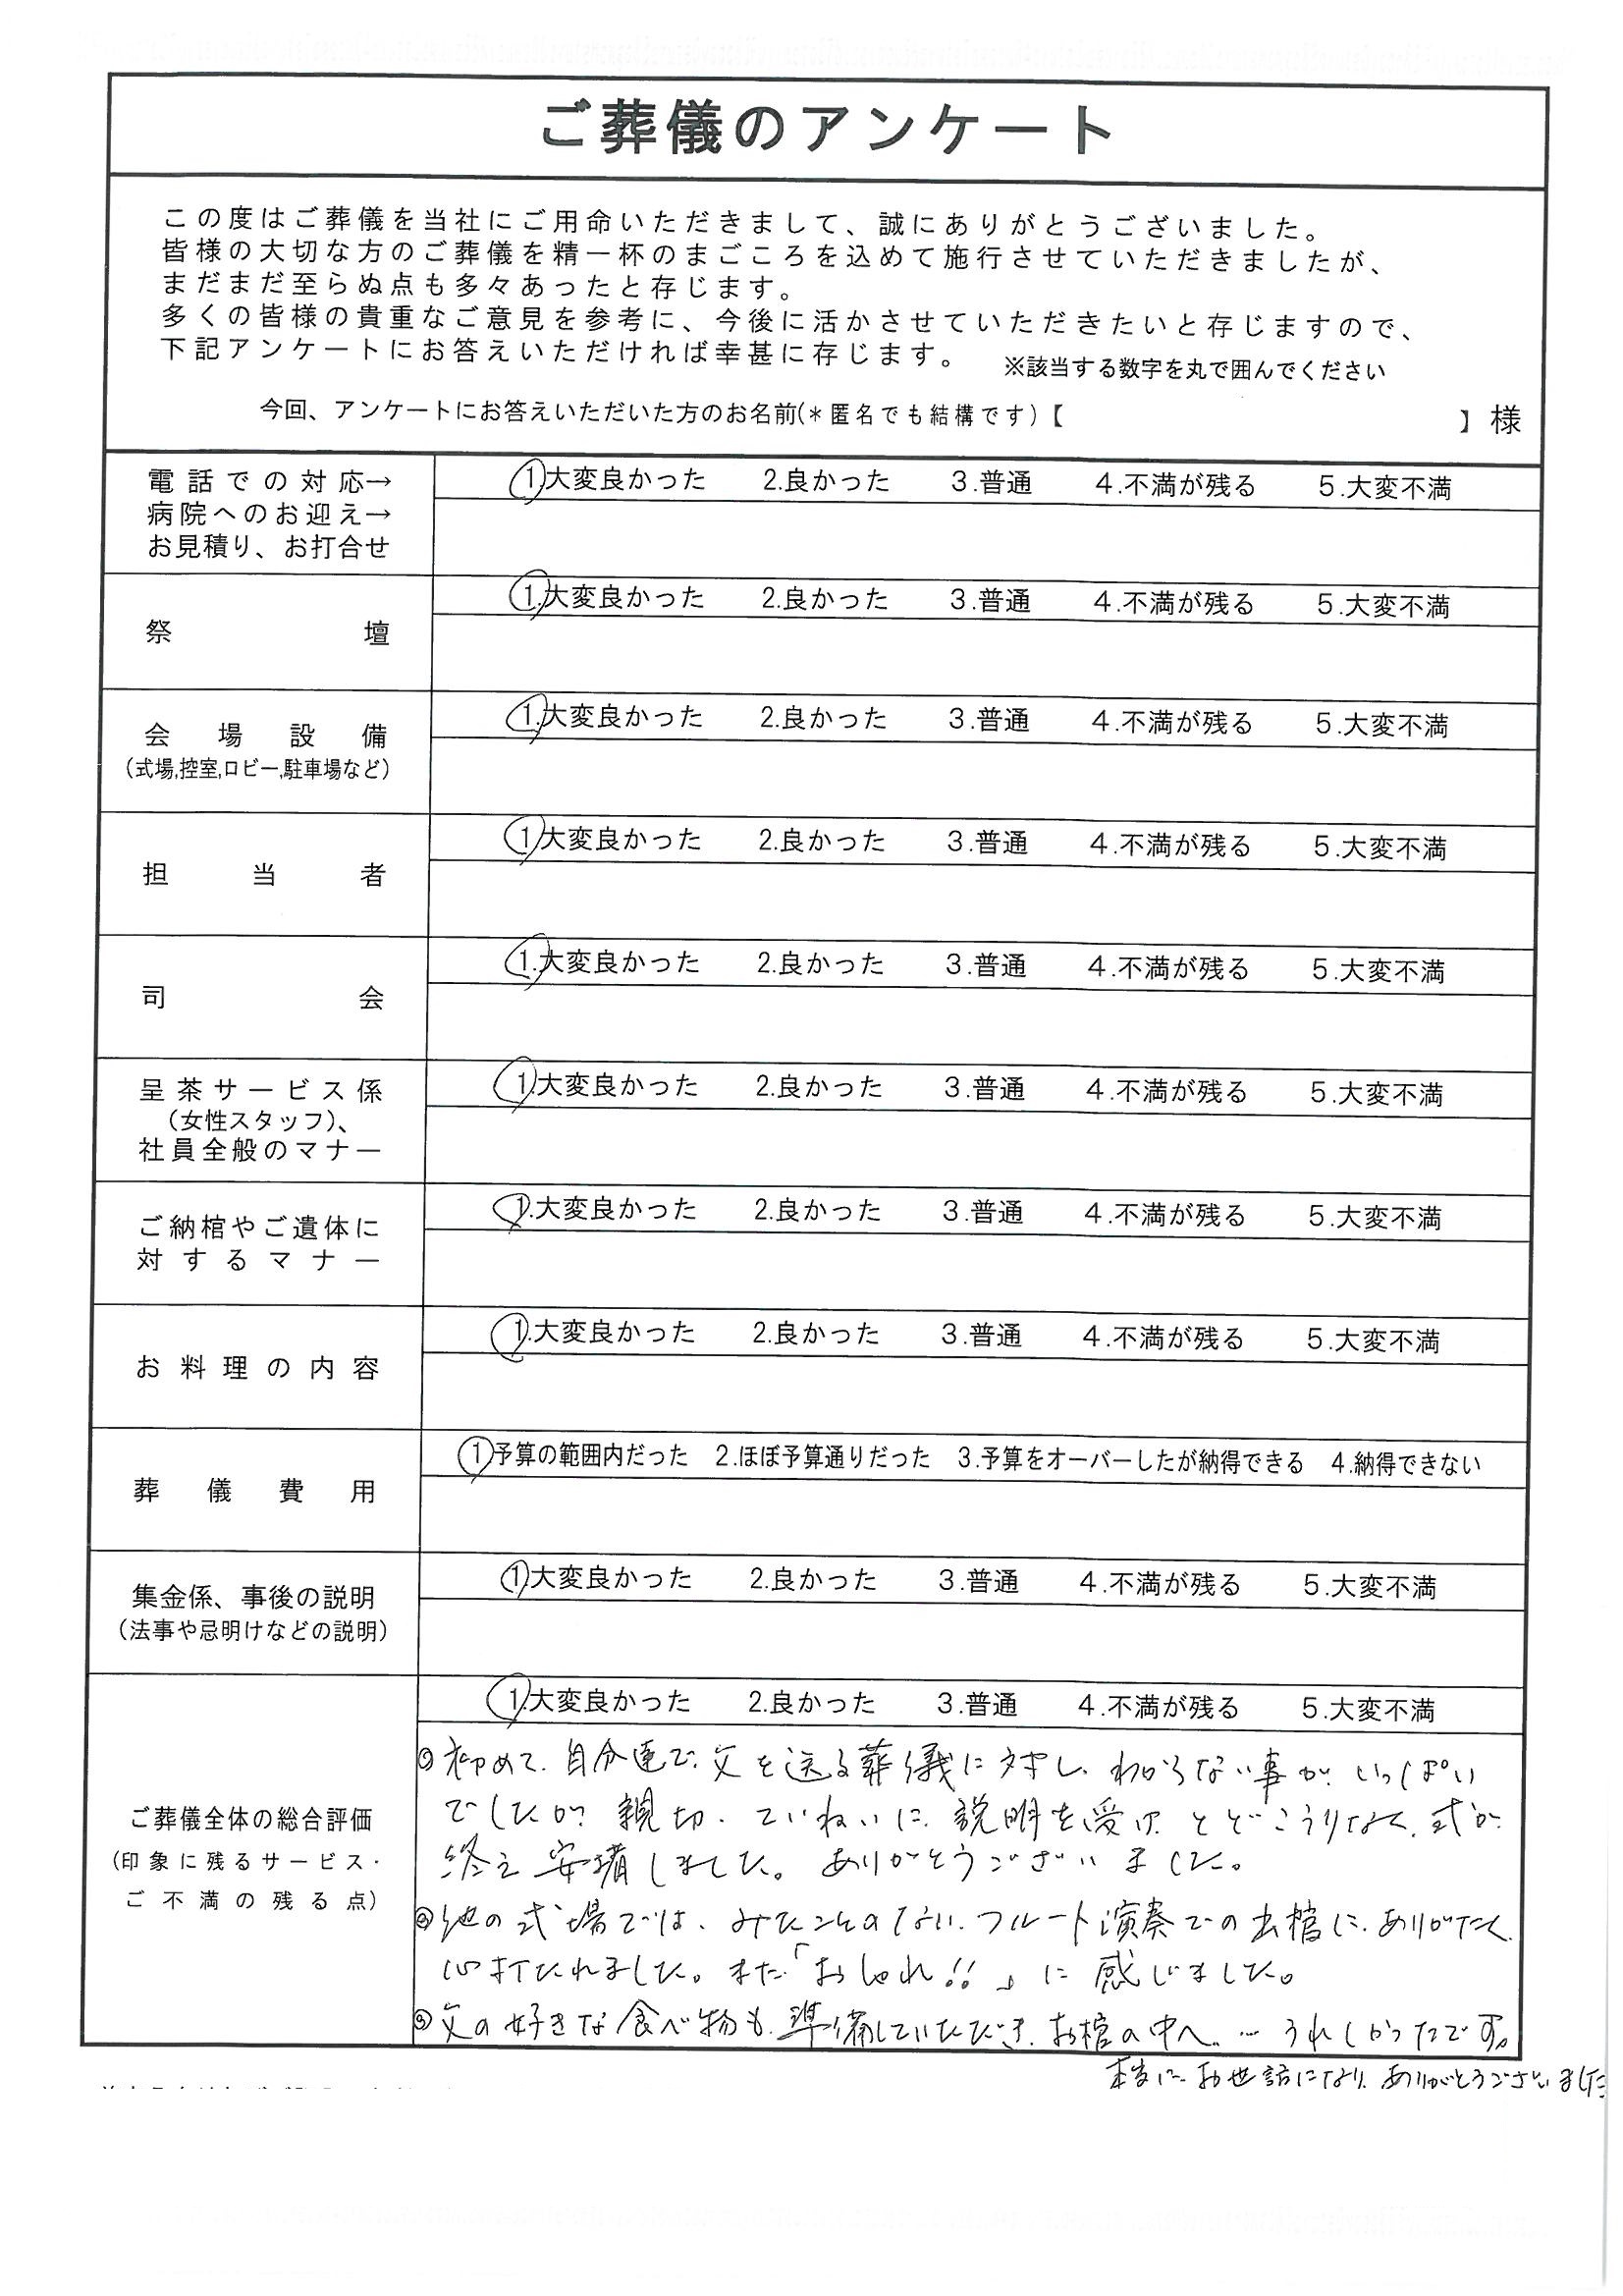 ご葬儀のアンケート
この度はご葬儀を当社にご用命いただきまして、誠にありがとうございました。
皆様の大切な方のご葬儀を精一杯のまごころを込めて施行させていただきましたが、
まだまだ至らぬ点も多々あったと存じます。
多くの皆様の貴重なご意見を参考に、今後に活かさせていただきたいと存じますので、
下記アンケートにお答えいただければ幸甚に存じます。 ※該当する数字を丸で囲んでください
今回、アンケートにお答えいただいた方のお名前(＊匿名でも結構です)【 】様
電話での対応→
病院へのお迎え→
お見積り、お打合せ
1.大変良かった 2.良かった 3.普通 4.不満が残る 5.大変不満
祭壇
1.大変良かった 2.良かった 3.普通 4.不満が残る 5.大変不満
会場設備
(式場,控室,ロビー,駐車場など)
1.大変良かった 2.良かった 3.普通 4.不満が残る 5.大変不満
担当者
1.大変良かった 2.良かった 3.普通 4.不満が残る 5.大変不満
司会
1.大変良かった 2.良かった 3.普通 4.不満が残る 5.大変不満
呈茶サービス係
(女性スタッフ)、
社員全般のマナー
1.大変良かった 2.良かった 3.普通 4.不満が残る 5.大変不満
ご納棺やご遺体に
対するマナー
1.大変良かった 2.良かった 3.普通 4.不満が残る 5.大変不満
お料理の内容
1.大変良かった 2.良かった 3.普通 4.不満が残る 5.大変不満
葬儀費用
1.予算の範囲内だった 2.ほぼ予算通りだった 3.予算をオーバーしたが納得できる 4.納得できない
集金係、事後の説明
(法事や忌明けなどの説明)
1.大変良かった 2.良かった 3.普通 4.不満が残る 5.大変不満
ご葬儀全体の総合評価
(印象に残るサービス・
ご不満の残る点)
1.大変良かった 2.良かった 3.普通 4.不満が残る 5.大変不満
①初めて、自分達で、父を送る葬儀に対し、わからない事が、いっぱい
でしたが、親切、ていねいに、説明を受け、とどこうりなく、式が
終え安堵しました。ありがとうございました。
②他の式場では、みたことのない、フルート演奏での出棺に、ありがたく、
心打たれました。また「おしゃれ!!」に感じました。
③父の好きな食べ物も、準備していただき、お棺の中へ…うれしかったです。
本当に、お世話になり、ありがとうございました